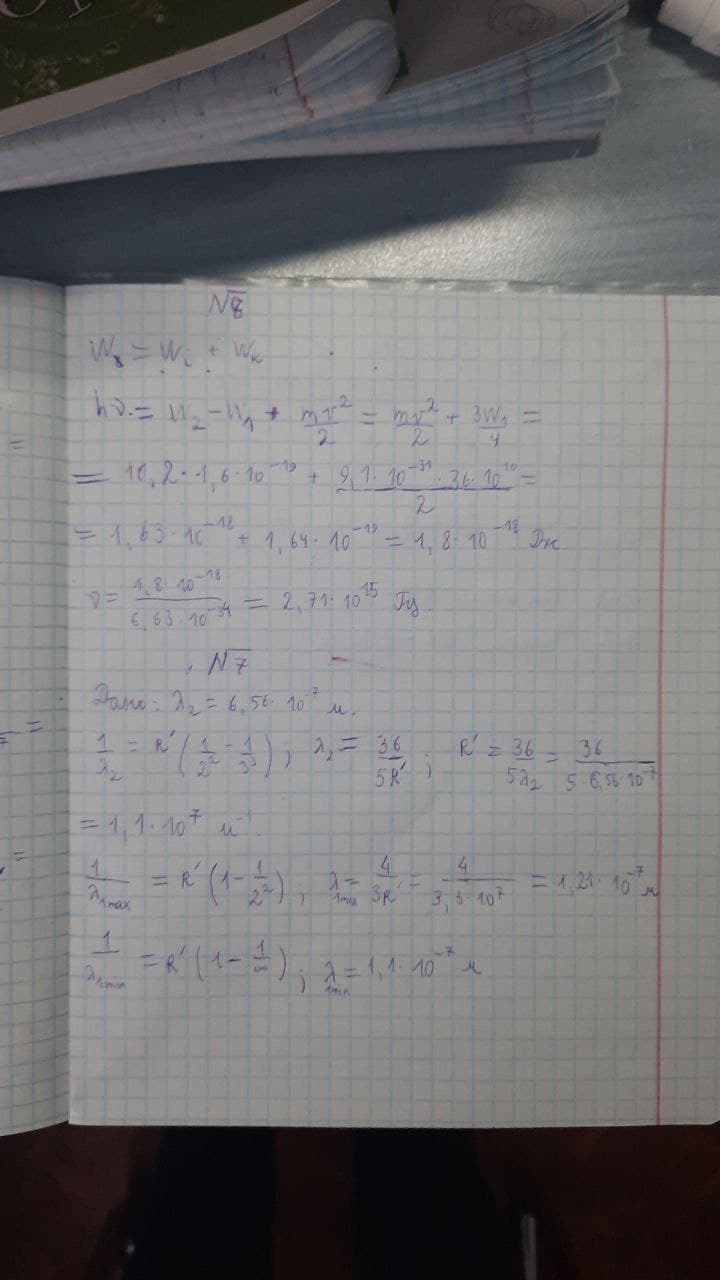 №8
W₈ = Wᵢ + Wₖ
hν = W₂ - W₁ + mv²/2 = mv²/2 + 3W₁/4 =
= 10,2 · 1,6 · 10⁻¹⁹ + 9,1 · 10⁻³¹ · 36 · 10¹⁰/2 =
= 1,63 · 10⁻¹⁸ + 1,64 · 10⁻¹⁹ = 1,8 · 10⁻¹⁸ Дж
ν = 1,8 · 10⁻¹⁸/6,63 · 10⁻³⁴ = 2,71 · 10¹⁵ Гц.
№7
Дано: λ₂ = 6,56 · 10⁻⁷ м.
1/λ₂ = R′(1/2² - 1/3²), λ₂ = 36/5R′; R′ = 36/5λ₂ = 36/5 · 6,56 · 10⁻⁷
= 1,1 · 10⁷ м⁻¹.
1/λ₁max = R′(1 - 1/2²), λ₁max = 4/3R′ = 4/3,3 · 10⁷ = 1,21 · 10⁻⁷ м
1/λ₁min = R′(1 - 1/∞); λ₁min = 1,1 · 10⁻⁷ м